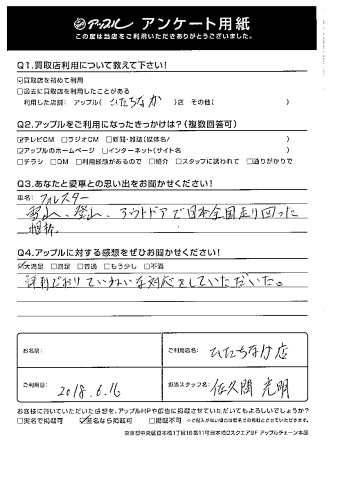 アップル アンケート用紙
この度は当店をご利用いただきありがとうございました。
Q1.買取店利用について教えて下さい!
☑買取店を初めて利用
□過去に買取店を利用したことがある
利用した店舗: アップル( ひたちなか )店 その他( )
Q2.アップルをご利用になったきっかけは?(複数回答可)
☑テレビCM □ラジオCM □新聞・雑誌(媒体名/ )
☑アップルのホームページ □インターネット(サイト名 )
□チラシ □DM □利用経験があるので □紹介 □スタッフに誘われて □通りがかりで
Q3.あなたと愛車との思い出をお聞かせください!
車名: フォレスター
雪山へ、登山、アウトドアで日本全国走り回った
相棒。
Q4.アップルに対する感想をぜひお聞かせください!
☑大満足 □満足 □普通 □もう少し □不満
評判どおりていねいな対応をしていただいた。
お名前:
ご利用店名: ひたちなか店
ご利用日: 2018.6.16
担当スタッフ名: 佐久間 光明
お客様に書いていただいた感想を、アップルHPや広告に掲載させていただいてもよろしいでしょうか?
□実名で掲載可 ☑匿名なら掲載可 □掲載不可
東京都中央区日本橋1丁目16番11号日本橋Dスクエア9F アップルチェーン本部